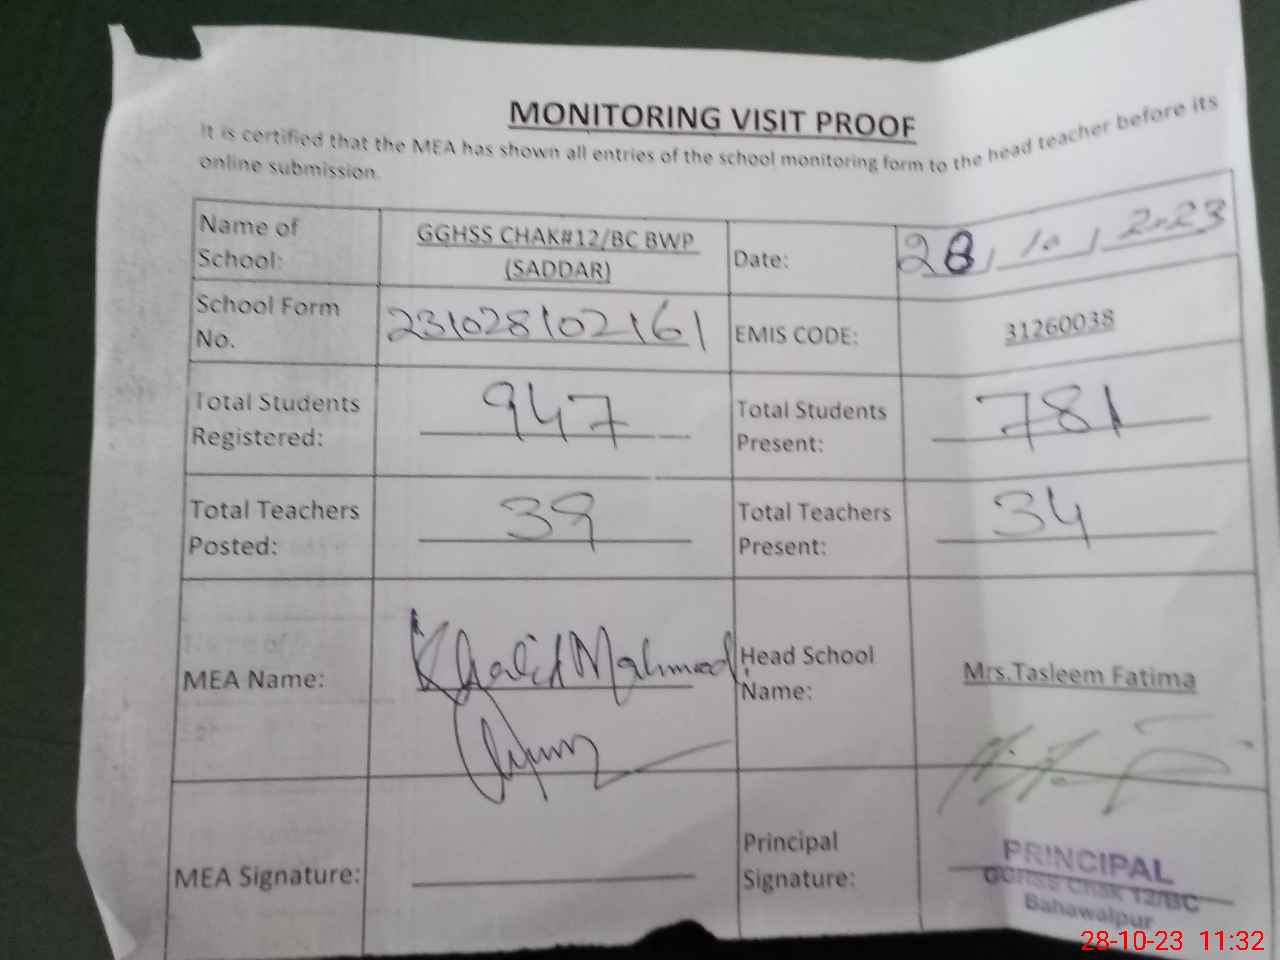 MONITORING VISIT PROOF
It is certified that the MEA has shown all entries of the school monitoring form to the head teacher before its
online submission.
Name of School: GGHSS CHAK#12/BC BWP (SADDAR) Date: 28/10/2023
School Form No. 231028102161 EMIS CODE: 31260038
Total Students Registered: 947 Total Students Present: 781
Total Teachers Posted: 39 Total Teachers Present: 34
MEA Name: Khalid Mahmood Head School Name: Mrs.Tasleem Fatima
MEA Signature: Principal Signature:
PRINCIPAL
GGHSS Chak 12/BC
Bahawalpur
28-10-23 11:32